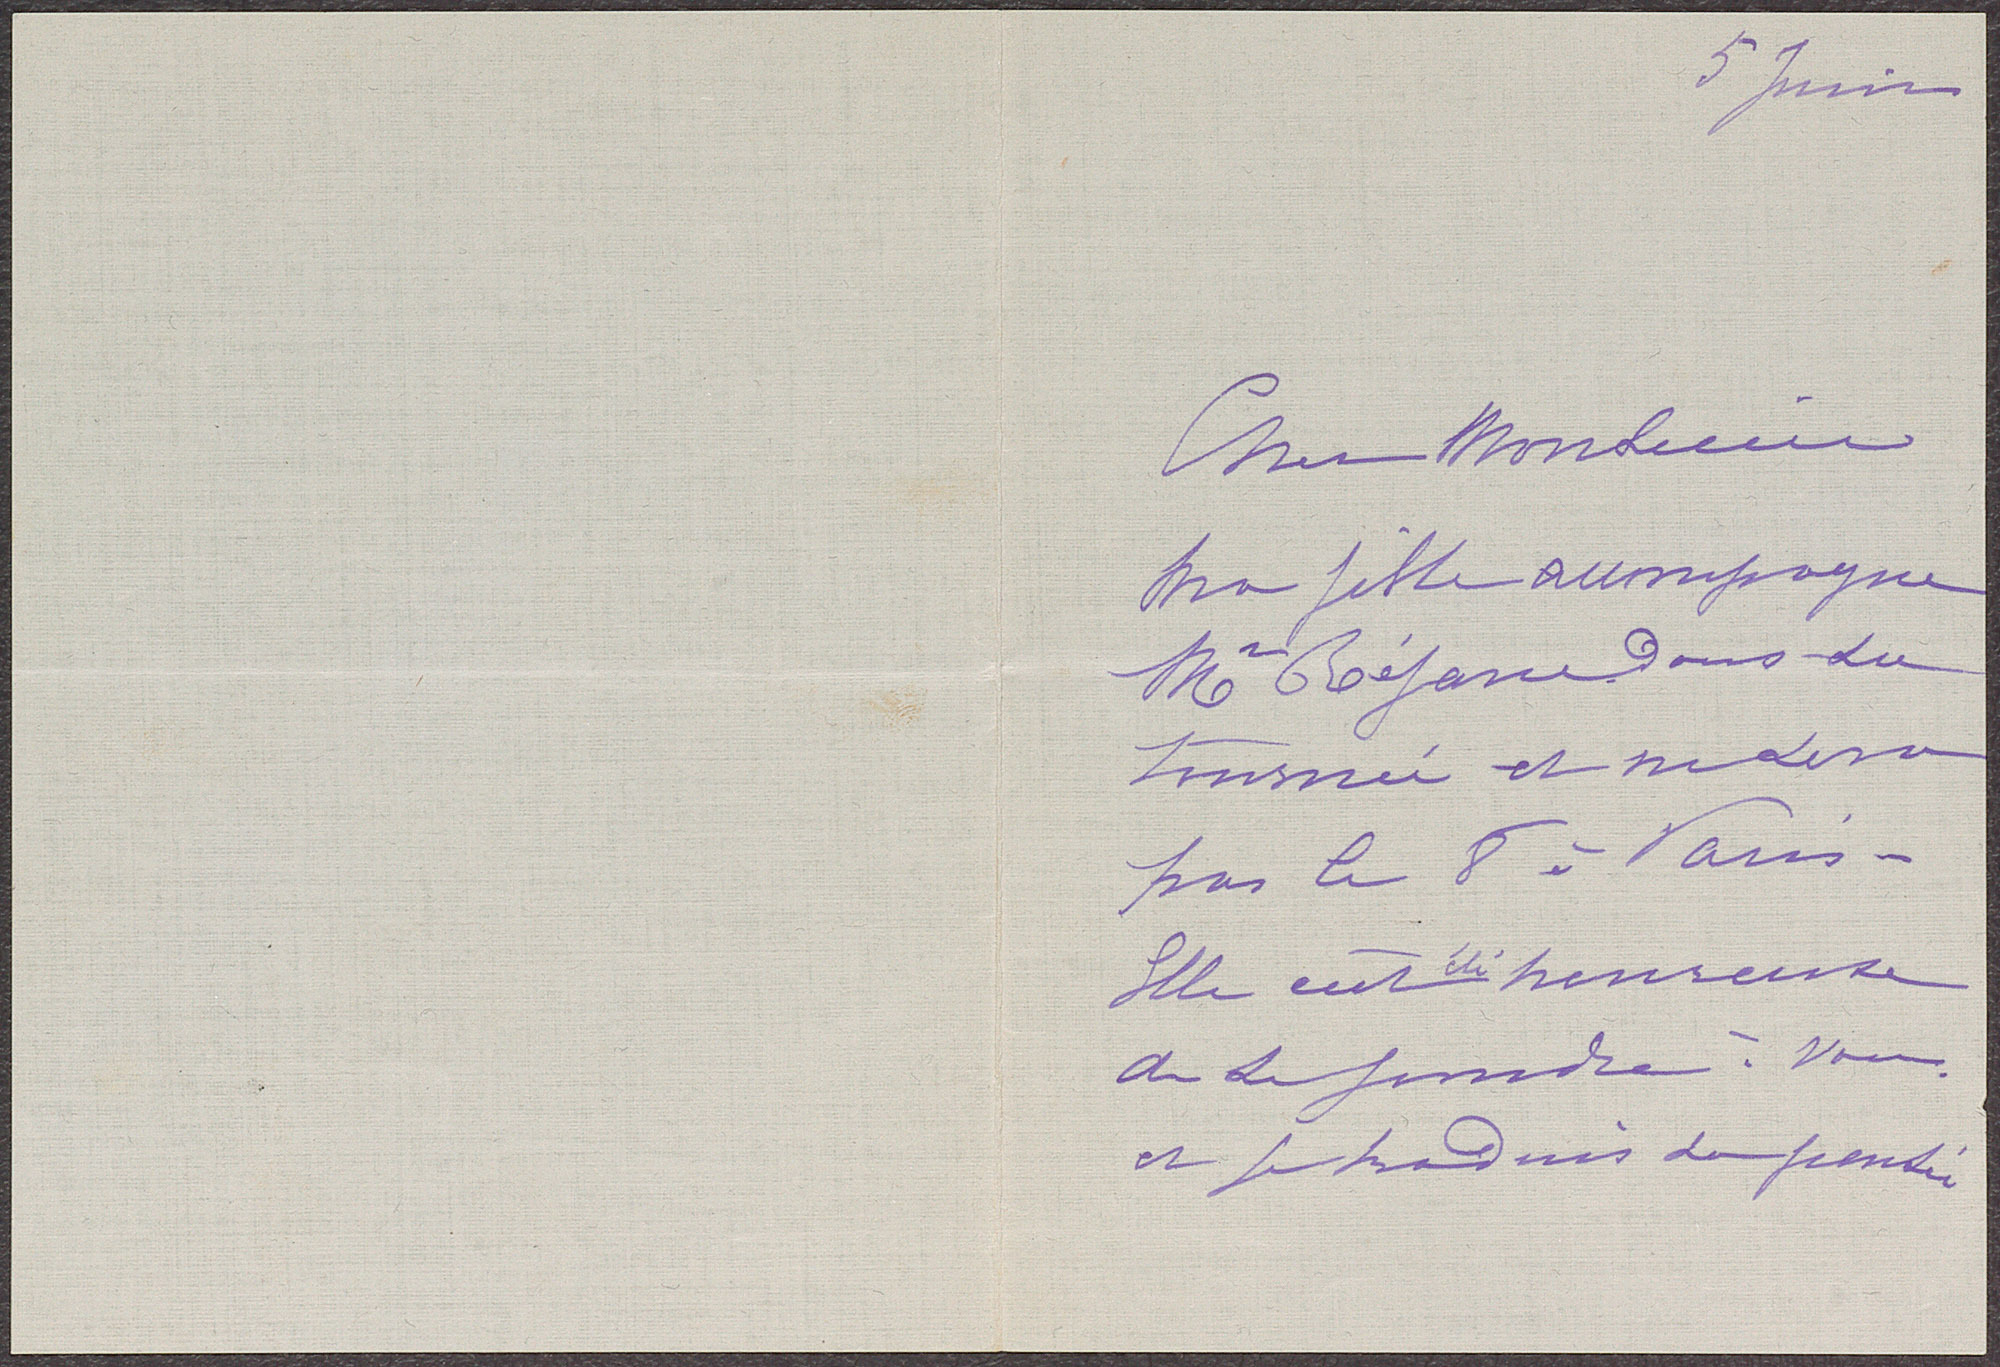 5 Juin
Cher Monsieur
ma fille accompagne
Me Réjane dans sa
tournée et ne sera
pas le 8 à Paris -
Elle eut été heureuse
de se joindre à vous.
et je traduis sa pensée